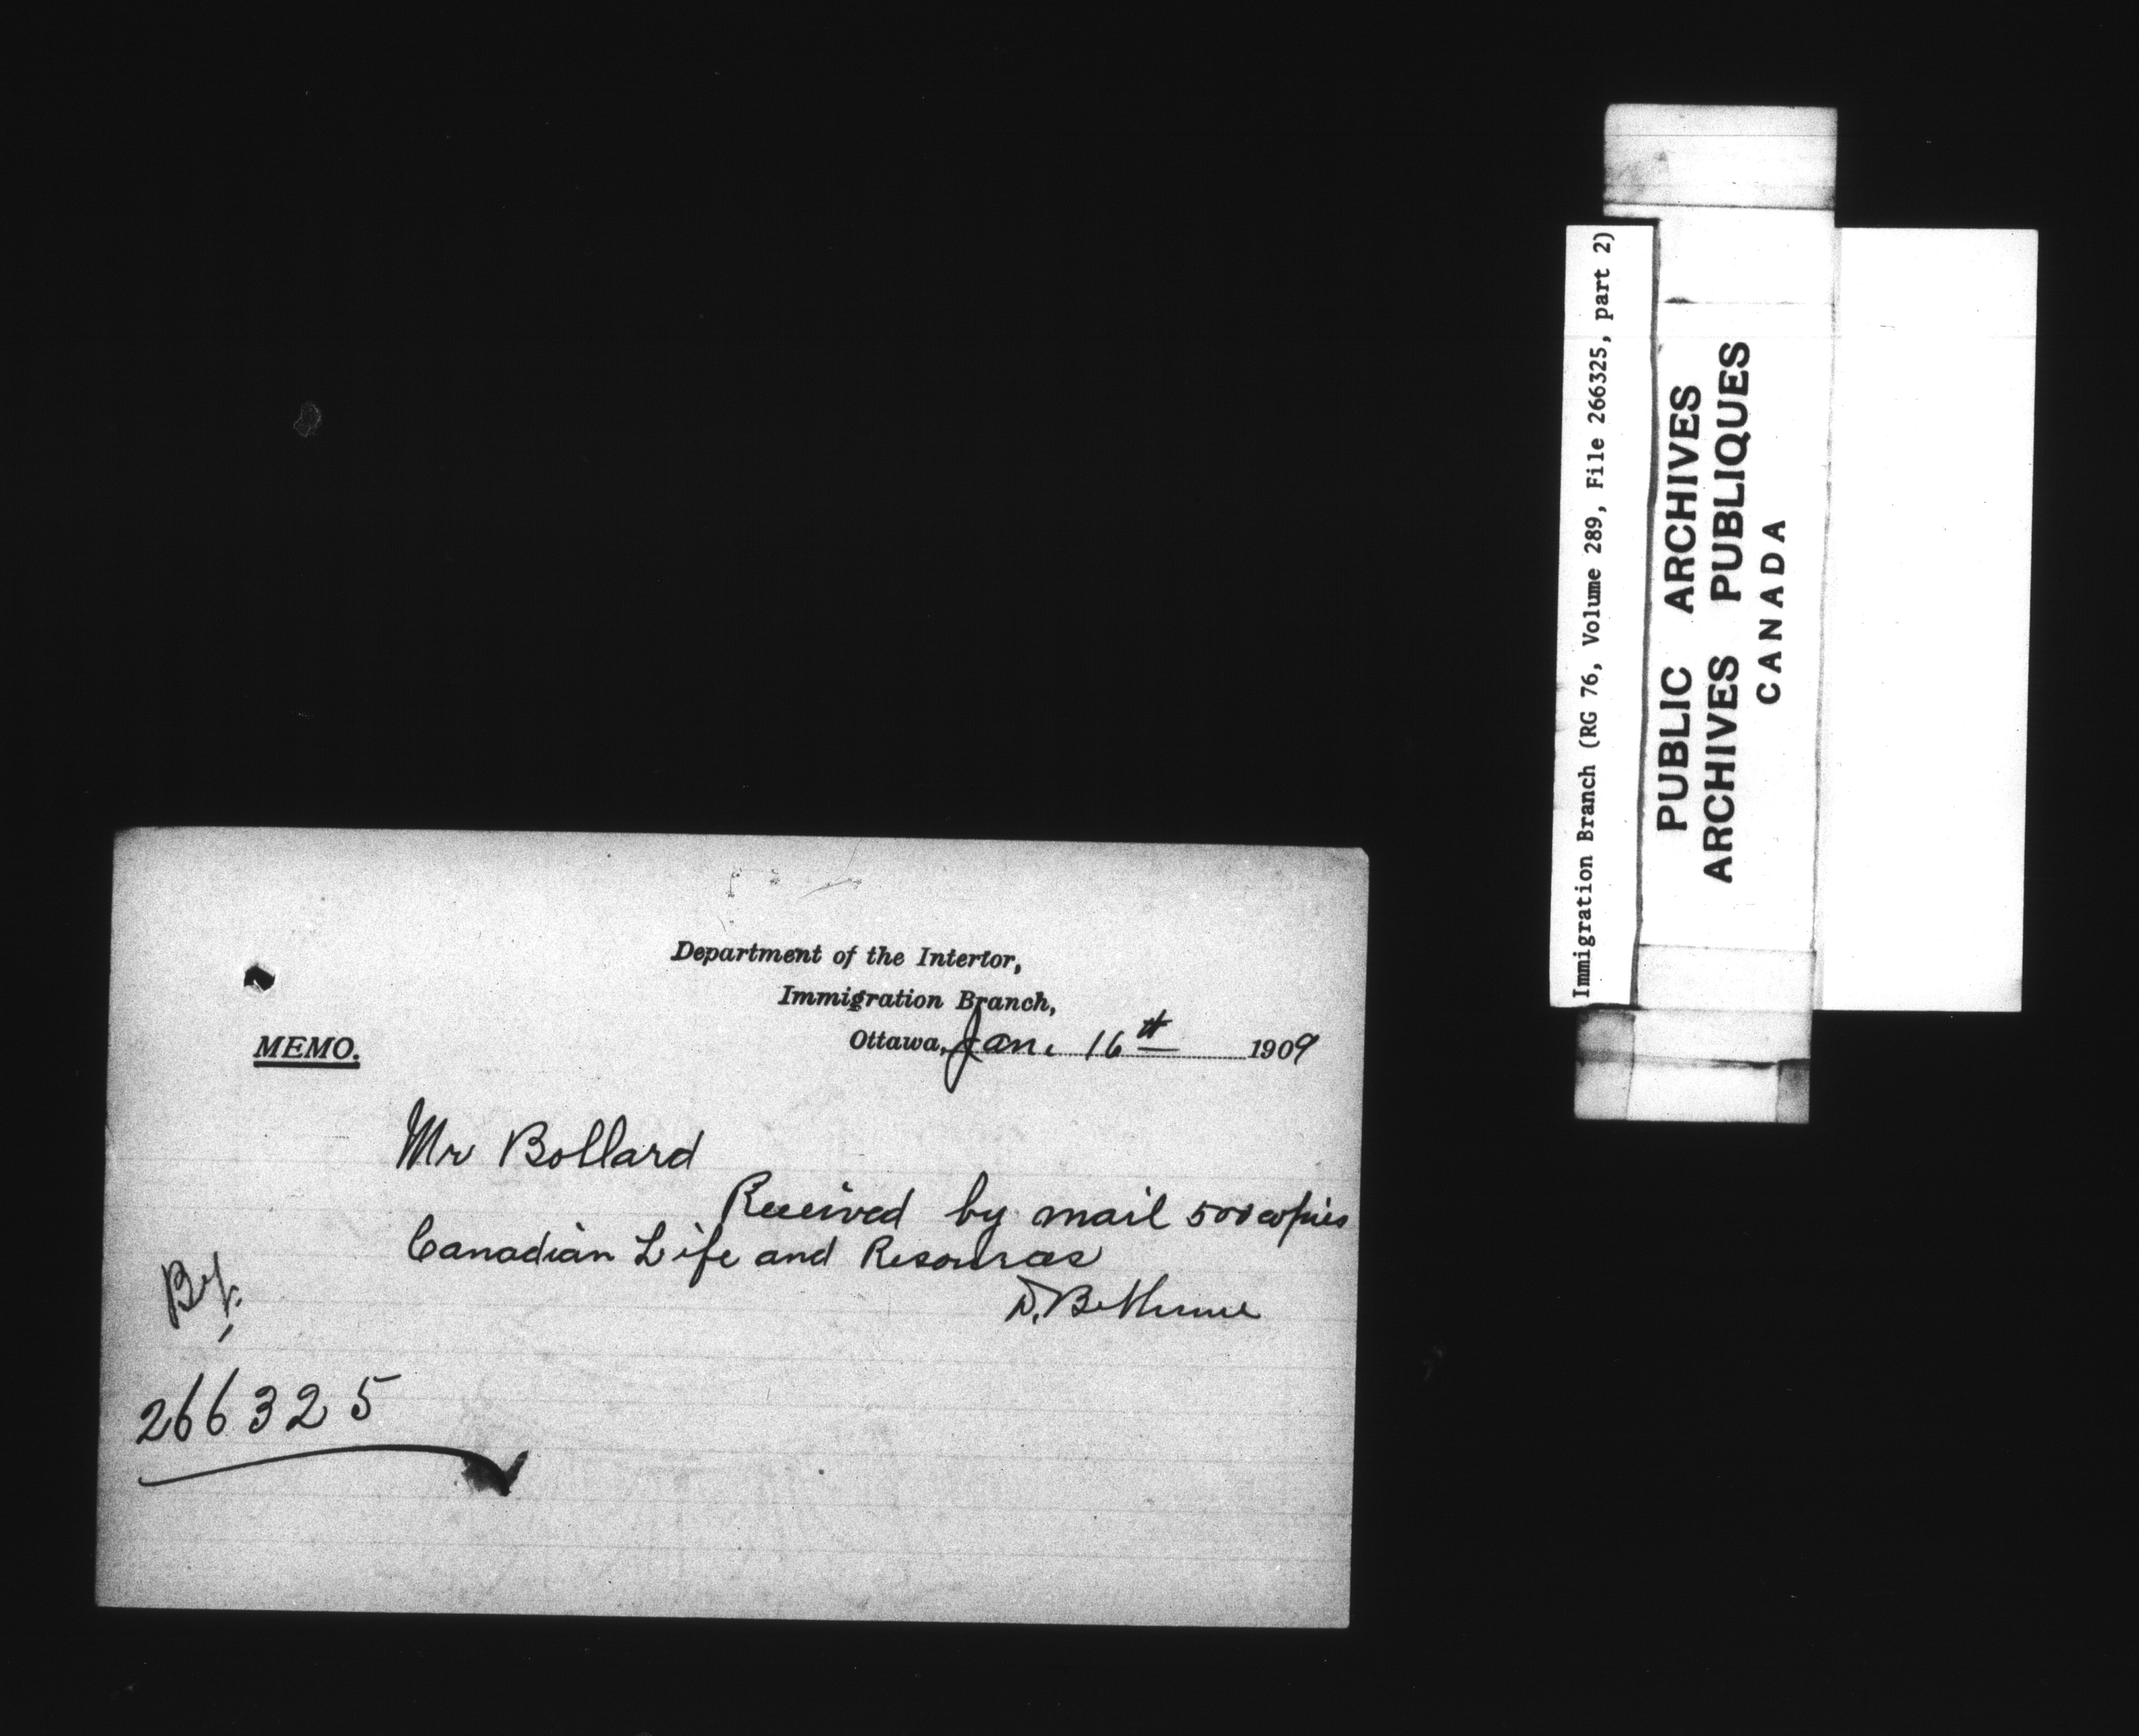 Department of the Interior,
Immigration Branch,
Ottawa, Jan. 16th 1909
MEMO.
Mr Bollard
Received by mail 500 copies
Canadian Life and Resources
D. Bethune
266325
Immigration Branch (RG 76, Volume 289, File 266325, part 2)
PUBLIC ARCHIVES
ARCHIVES PUBLIQUES
CANADA